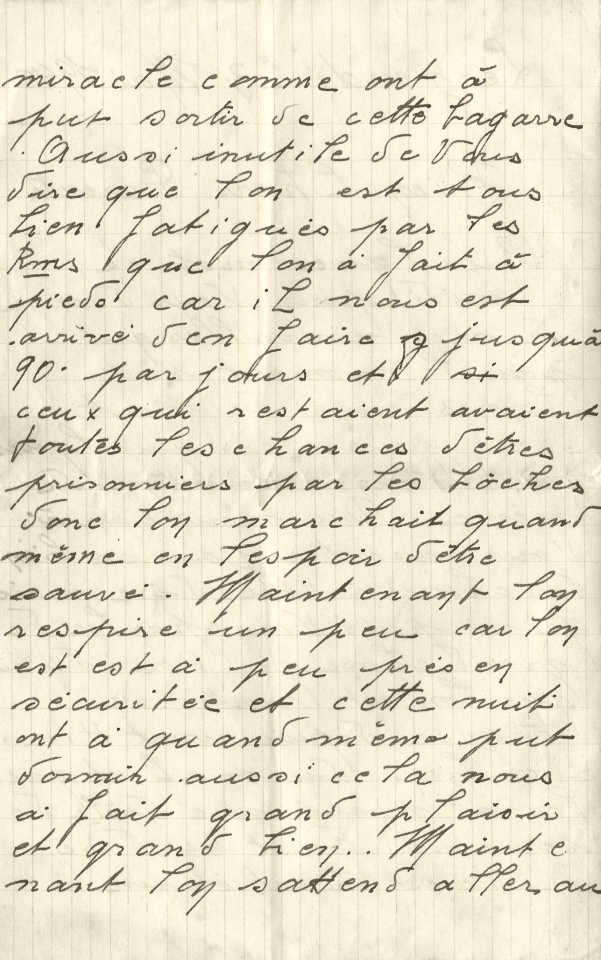 miracle comme ont á
put sortir de cette bagarre
. Aussi inutile de Vous
dire que lon est tous
bien fatigués par les
Kms que lon á fait á
pieds car il nous est
arrivé den faire jusquá
90. par jours et si
ceux qui restaient avaient
toutes les chances dêtres
prisonniers par les bôches
donc lon marchait quand
même en lespoir dêtre
sauvé. Maintenant lon
respire un peu car lon
est est á peu près en
sécuritée et cette nuit
ont á quand même put
dormir aussi cela nous
á fait grand plaisir
et grand bien.. Mainte
nant lon sattend aller au